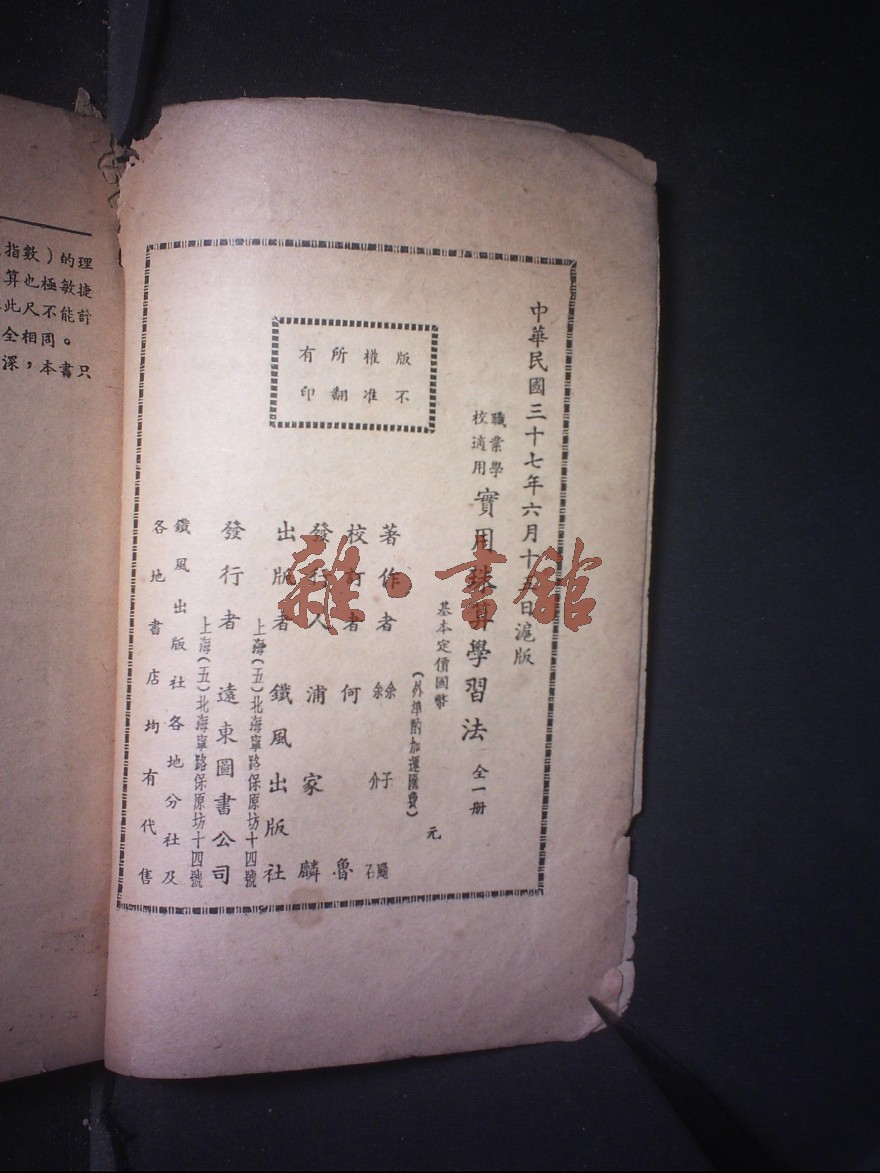 中華民國三十七年六月十五日滬版
職業學
校適用
實用珠算學習法 全一册
基本定價國幣 元
(外埠酌加運匯費)
版權所有
不准翻印
著作者
校訂者 何魯
發行人 浦家麟
出版者 鐵風出版社
上海(五)北海寧路保原坊十四號
發行者 遠東圖書公司
上海(五)北海寧路保原坊十四號
鐵風出版社各地分社及
各地書店均有代售
指數)的理
算也極敏捷
此尺不能計
全相同。
深,本書只
雜·書館